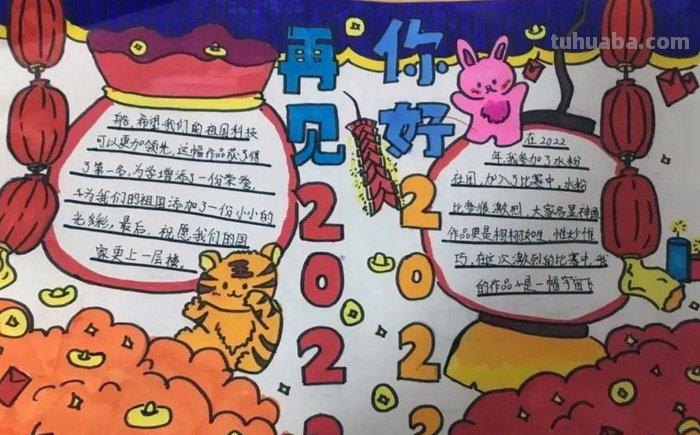 tuhuaba.com
再见2022
你好2022
在2022
年,我参加了水粉
社团,加入了比赛中,水粉
比参很激烈,大家各显神通
作品更是栩栩如生,惟妙惟
巧,在这次激烈的比赛中,我
的作品是一幅宇宙飞
船,希望我们的祖国科技
可以更加领先,这幅作品获了得
了第一名,为学增添了一份荣誉,
为我们的祖国添加了一份小小的
光彩,最后,祝愿我们的国
家更上一层楼。